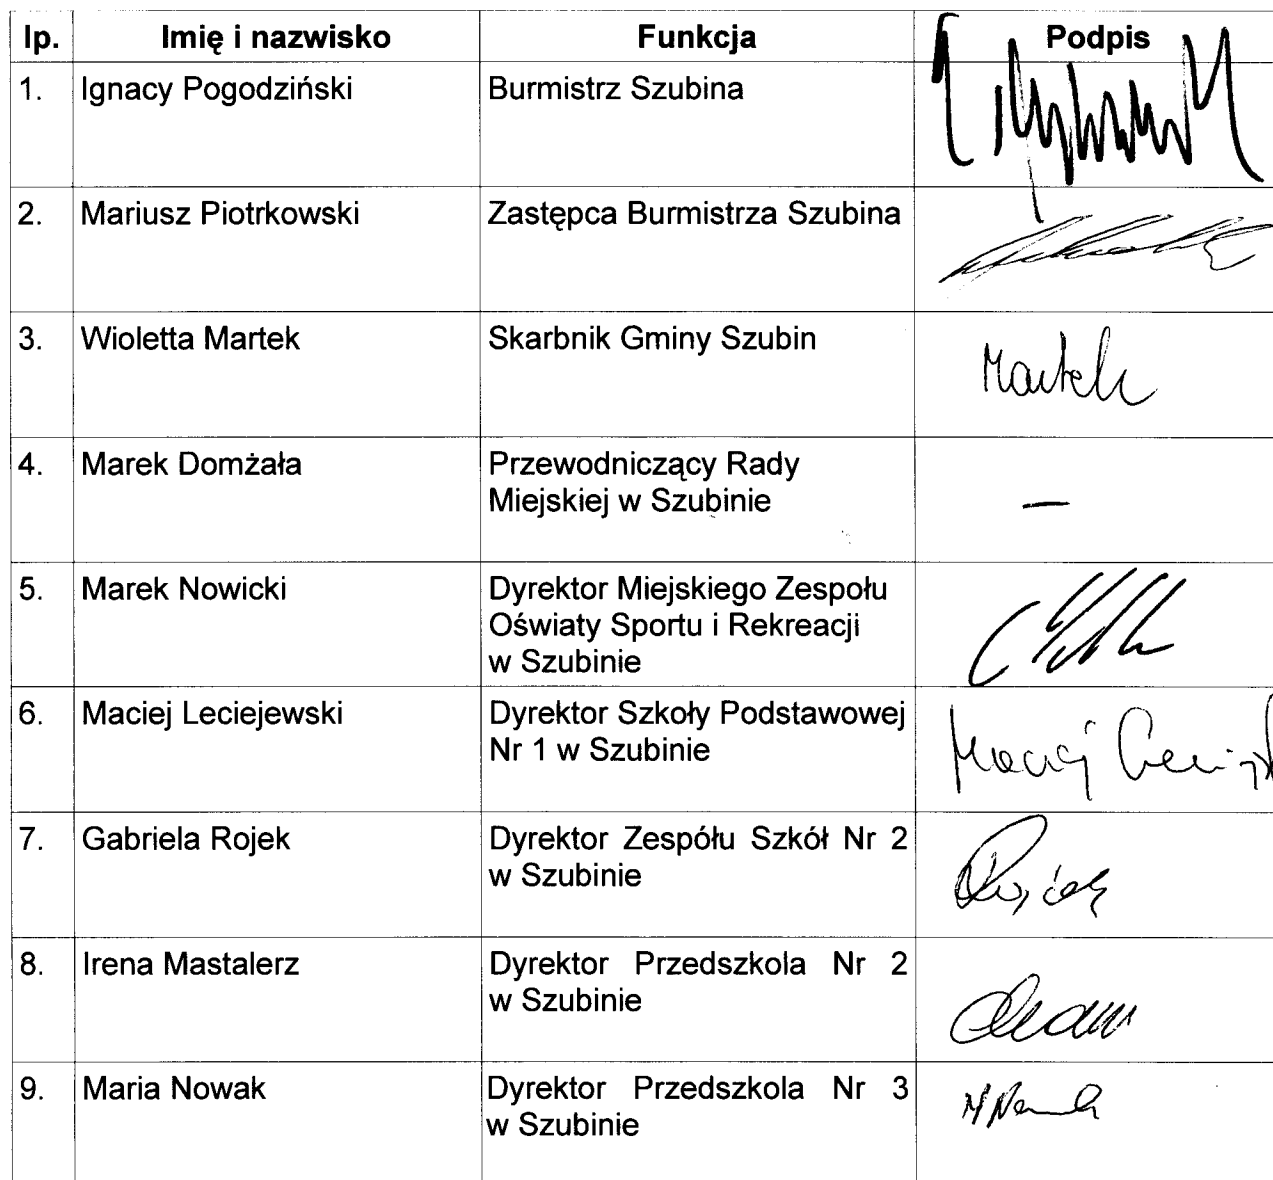 lp. Imię i nazwisko Funkcja Podpis
1. Ignacy Pogodziński Burmistrz Szubina
2. Mariusz Piotrkowski Zastępca Burmistrza Szubina
3. Wioletta Martek Skarbnik Gminy Szubin Martek
4. Marek Domżała Przewodniczący Rady
Miejskiej w Szubinie –
5. Marek Nowicki Dyrektor Miejskiego Zespołu
Oświaty Sportu i Rekreacji
w Szubinie
6. Maciej Leciejewski Dyrektor Szkoły Podstawowej Maciej
Nr 1 w Szubinie
7. Gabriela Rojek Dyrektor Zespółu Szkół Nr 2
w Szubinie
8. Irena Mastalerz Dyrektor Przedszkola Nr 2
w Szubinie
9. Maria Nowak Dyrektor Przedszkola Nr 3
w Szubinie